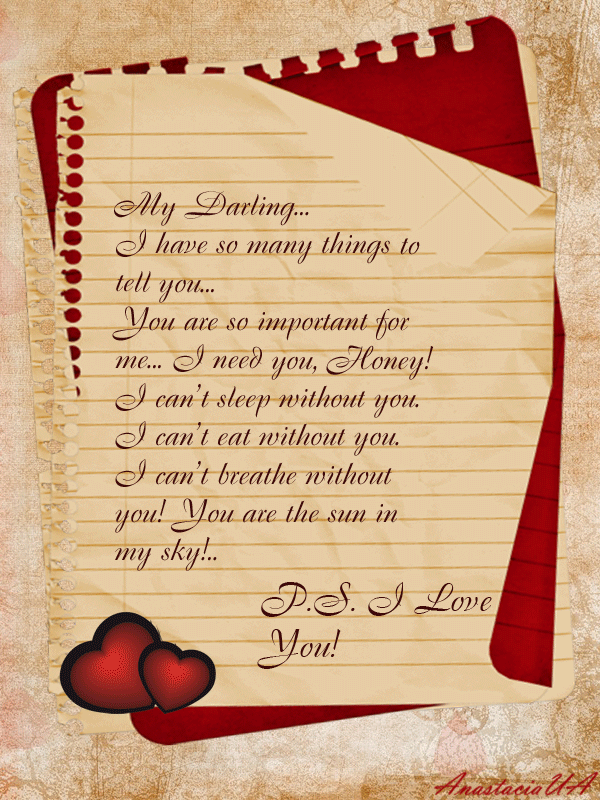 My Darling...
I have so many things to
tell you...
You are so important for
me... I need you, Honey!
I can't sleep without you.
I can't eat without you.
I can't breathe without
you! You are the sun in
my sky!..
P.S. I Love
You!
AnastaciaUA